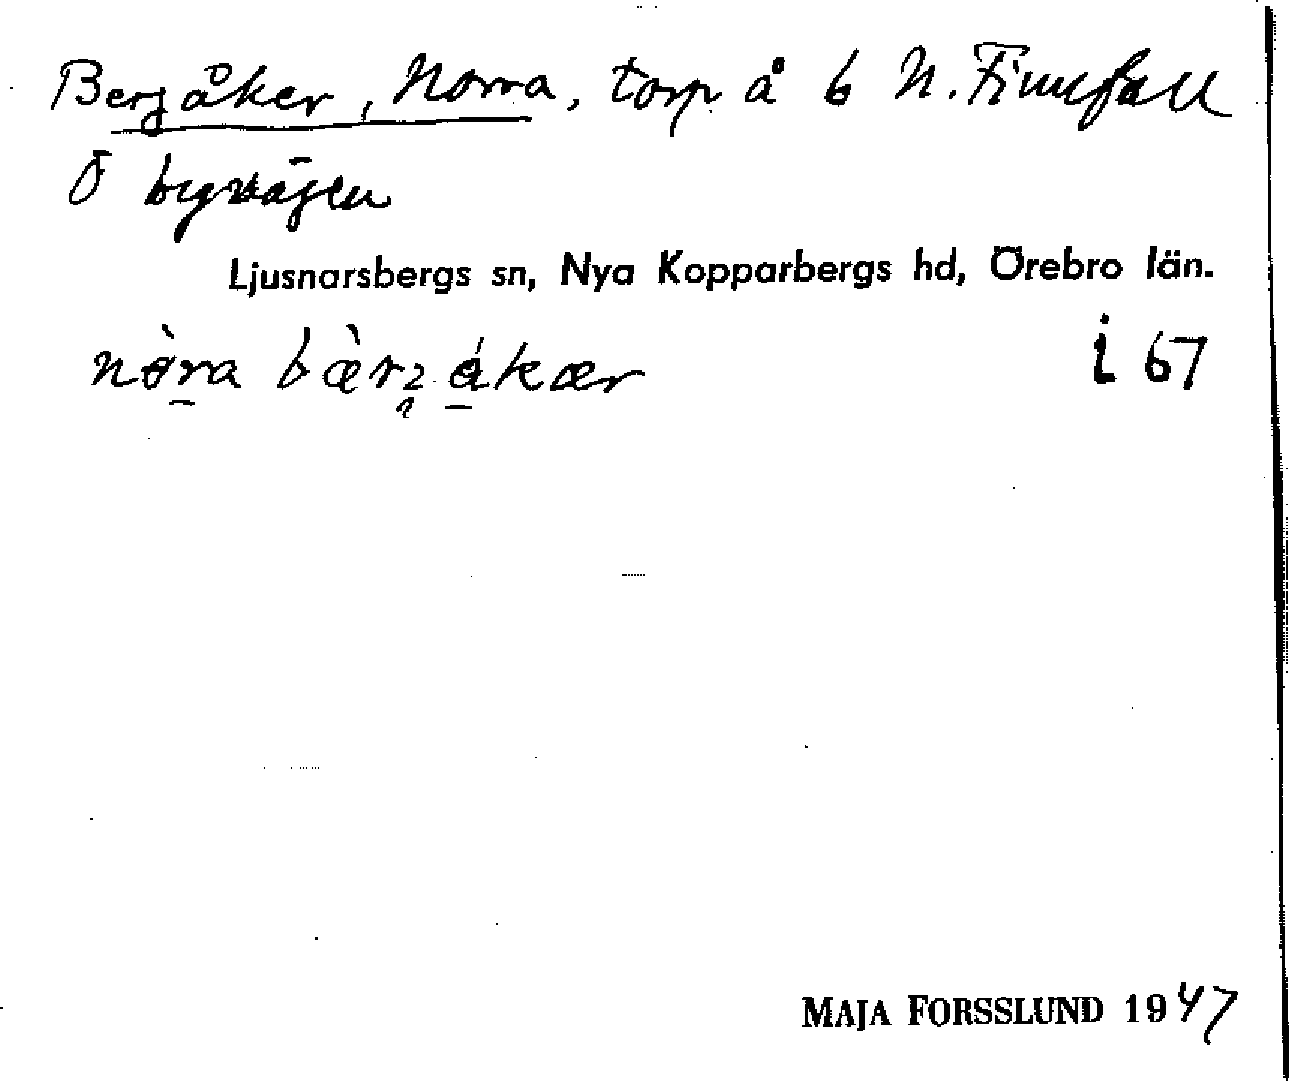 Bergåker, Norra, torp å 6 N. Finnfall
Ö byvägen
Ljusnarsbergs sn, Nya Kopparbergs hd, Örebro län.
nòra bær åkær i 67
MAJA FORSSLUND 1947